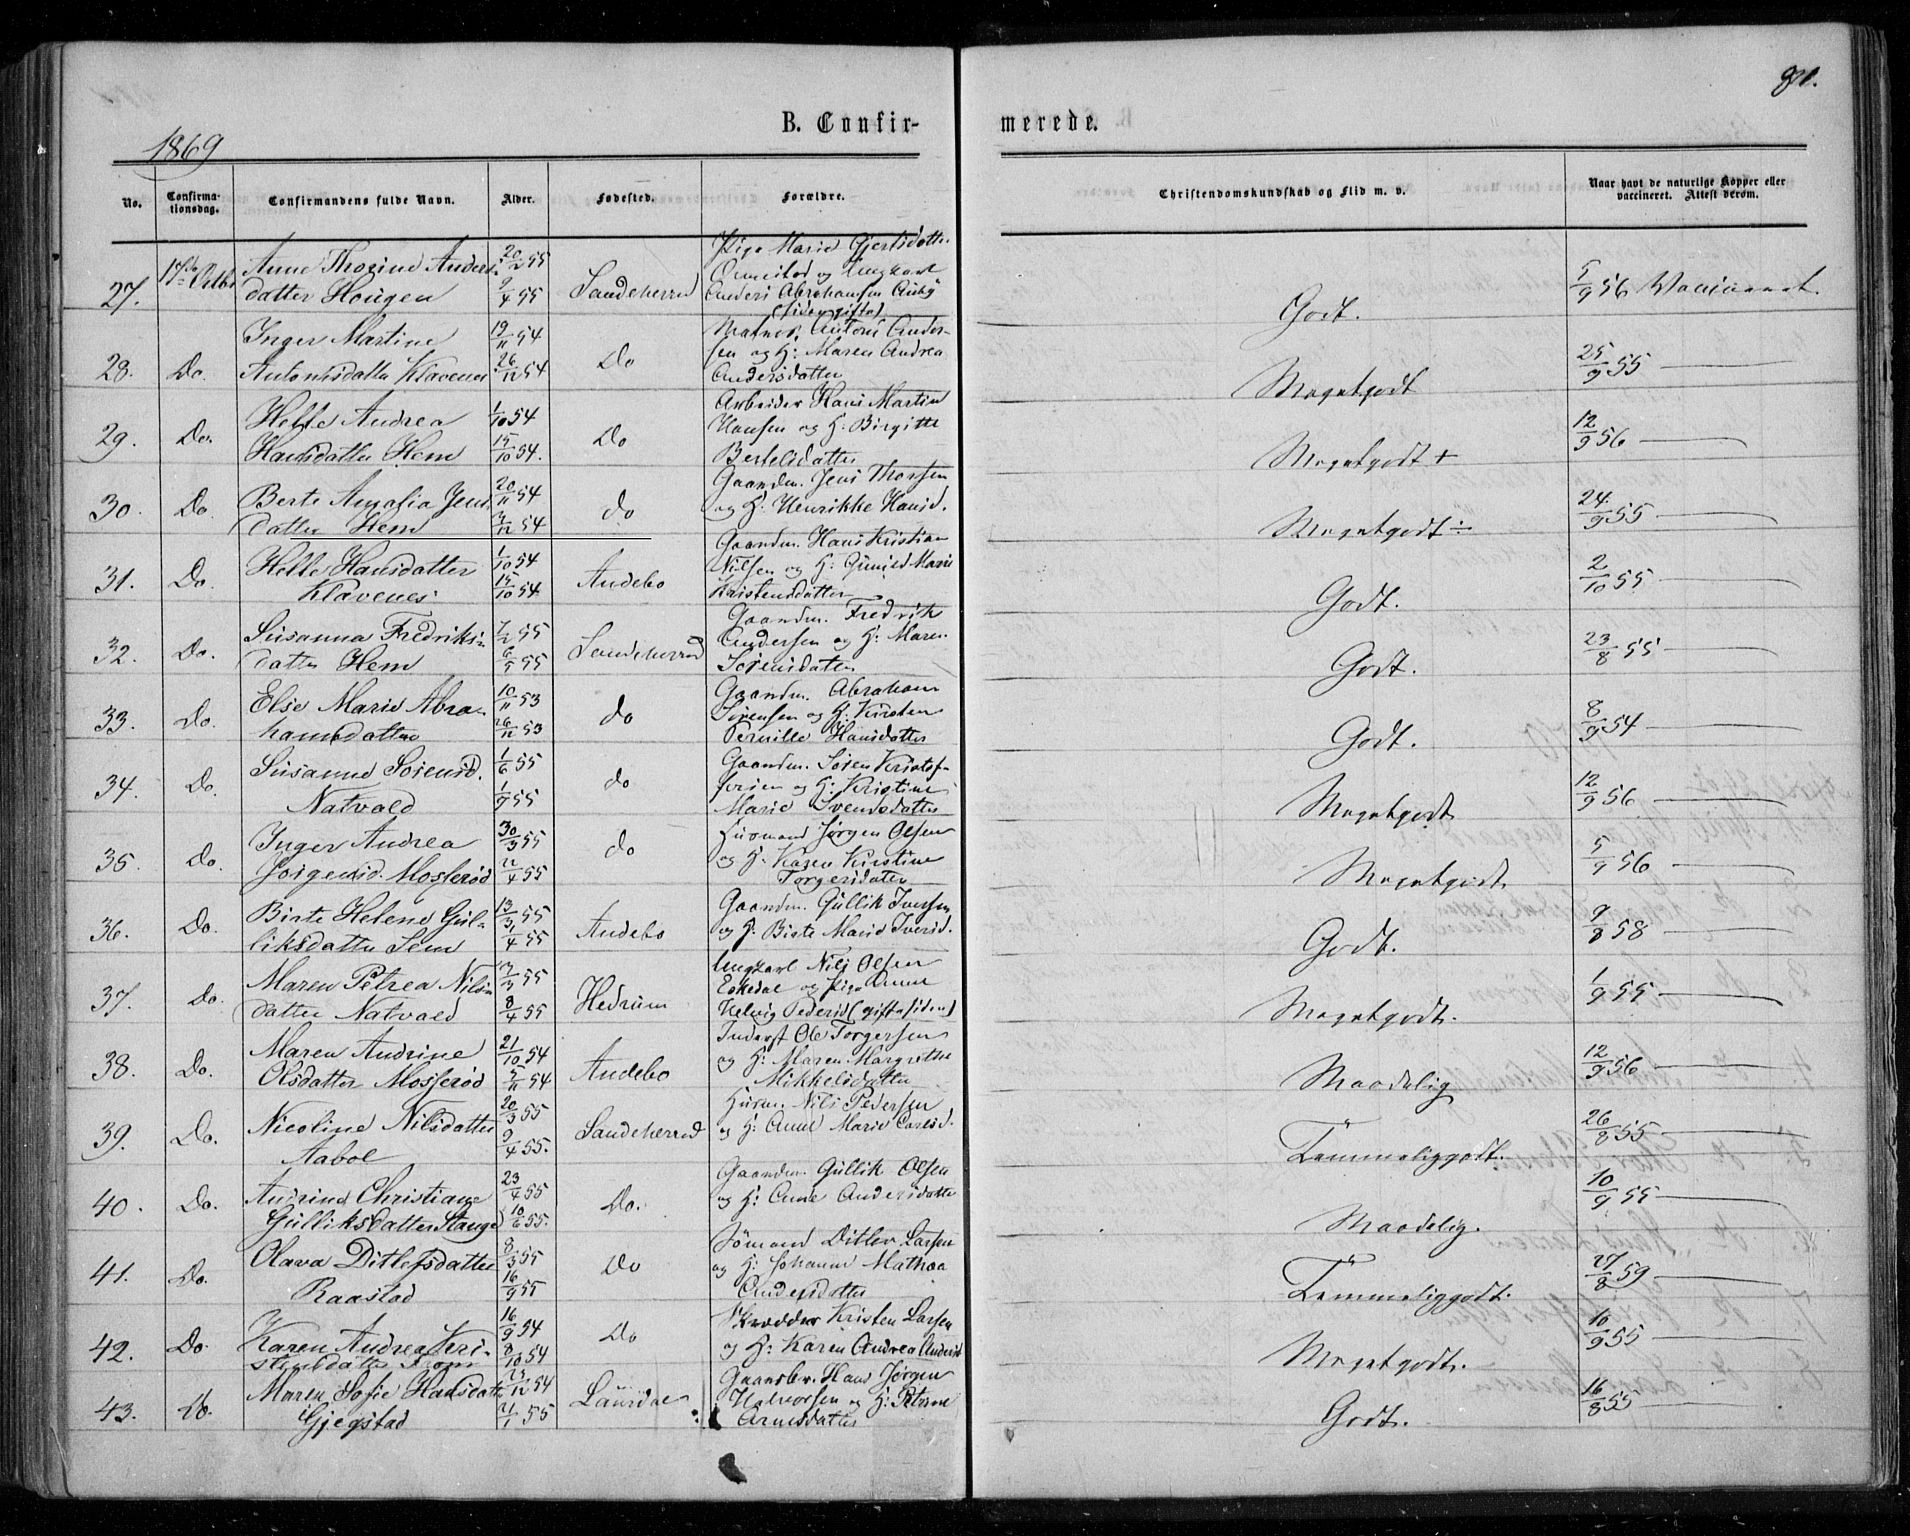 81.
1869
B. Confir-
merede.
No.
Confirma-
tionsdag.
Confirmandens fulde Navn.
Alder.
Fødested.
Forældre.
Christendomskundskab og Flid m. v.
Naar havt de naturlige Kopper eller
vaccineret. Attest derom.
27. 17de Octbr Anne Thorine Anders-
datter Hougen
20/2 55
9/4 55
Sandeherred
Pige Marie Gjertsdatter
og Ungkarl
Anders Abrahamsen
(siden gifte)
Godt.
5/9 56 Vaccineret.
28. Do. Inger Martine
Antonisdatter Klavenes
19/11 54
26/12 54
Do
Matros Antoni Ander-
sen og H: Maren Andrea
Andersdatter
Megetgodt
25/9 55
29. Do. Helle Andrea
Hansdatter Hem
1/10 54
15/10 54.
Do
Arbeider Hans Martin
Hansen og H. Birgitte
Bertelsdatter
Megetgodt +
12/9 56
30. Do. Berte Amalia Jens
datter Hem
20/11 54
3/12 54
do
Gaardm. Jens Thorsen
og H. Henrikke Hansd.
Megetgodt ÷
24/9 55
31. Do. Helle Hansdatter
Klavenes
1/10 54
15/10 54
Andebo
Gaardm. Hans Kristian
Nilsen og H: Gunild Marie
Kristensdatter
Godt.
2/10 55
32. Do. Susanna Fredriks-
datter Hem
7/2 55
6/5 55
Sandeherred
Gaardm. Fredrik
Andersen og H: Maren
Sørensdatter
Godt.
23/8 55
33. Do. Else Marie Abra-
hamsdatter
10/11 53
26/12 53
do
Gaardm. Abraham
Sørensen og H. Kirsten
Pernille Hansdatter
Godt.
8/9 54
34. Do. Susanne Sørensd.
Natvald
1/6 55
1/9 55
do
Gaardm. Søren Kristof-
fersen og H: Kristine
Marie Svendsdatter
Megetgodt
12/9 56
35. Do. Inger Andrea
Jørgensd. Mosserød
30/3 55
11/4 55
do
Husmand Jørgen Olsen
og H. Karen Kirstine
Torgersdatter
Megetgodt.
5/9 56
36. Do. Birte Helene Gul-
liksdatter Sem
13/3 55
1/4 55
Andebo
Gaardm. Gullik Iversen
og H. Birte Marie Iversd.
Godt.
9/8 58
37. Do. Maren Petrea Nils-
datter Natvald
3/3 55
8/4 55
Hedrum
Ungkarl Nils Olsen
Eskedal og Pige Anne
Helvig Pedersd (gifte siden)
Megetgodt.
1/9 55
38. Do. Maren Andrine
Olsdatter Mosserød
21/10 54
5/11 54
Andebo
Inderst Ole Torgersen
og H: Maren Margrethe
Mikkelsdatter
Maadelig
12/9 56
39. Do. Nicoline Nilsdatter
Aabol
20/3 55
9/4 55.
Sandeherred
Husm. Nils Pedersen
og H: Anne Marie Carlsd.
Temmeliggodt.
26/8 55
40. Do. Andrine Christiane
Gulliksdatter Stange
23/4 55
10/6 55.
Do.
Gaardm. Gullik Olsen
og H: Anne Andersdatter
Maadelig.
10/9 55
41. Do. Olava Ditlefsdatter
Raastad
8/3 55
16/9 55
Do
Sømand Ditlev Larsen
og H: Johanne Mathea
Andersdatter
Temmeliggodt.
27/8 59
42. Do. Karen Andrea Kri-
stensdatter From
16/9 54
8/10 54
Do
Skrædder Kristen Larsen
og H: Karen Andrea Andersd
Megetgodt.
10/9 55
43. Do. Maren Sofie Hansdatter
Gjegstad
23/12 54
21/1 55
Laurdal
Gaardbr. Hans Jørgen
Halvorsen og H: Petrine
Arnesdatter
Godt.
16/8 55